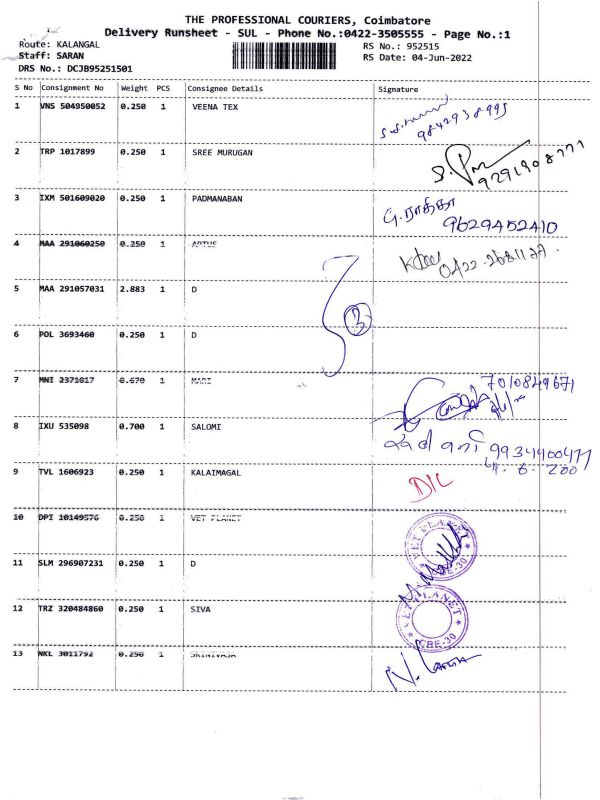 THE PROFESSIONAL COURIERS, Coimbatore
Delivery Runsheet - SUL - Phone No.:0422-3505555 - Page No.:1
Route: KALANGAL
RS No.: 952515
Staff: SARAN
RS Date: 04-Jun-2022
DRS No.: DCJB95251501
S No Consignment No Weight PCS Consignee Details Signature
1 VNS 504950052 0.250 1 VEENA TEX
9842938995
2 TRP 1017899 0.250 1 SREE MURUGAN
3 IXM 501609020 0.250 1 PADMANABAN G. ராதிகா
9629452410
4 MAA 291060250 0.250 1 ARTUS
5 MAA 291057031 2.883 1 D
3
6 POL 3693460 0.250 1 D
7 MNI 2371817 0.670 1 MARI 7010849671
8 IXU 535098 0.700 1 SALOMI
9 TVL 1606923 0.250 1 KALAIMAGAL D/L
10 DPI 10149576 0.250 1 VET PLANET
VET PLANET
CBE-30
11 SLM 296907231 0.250 1 D
12 TRZ 320484860 0.250 1 SIVA
VET PLANET
CBE-30
13 NKL 3011792 0.250 1 SRINIVASA